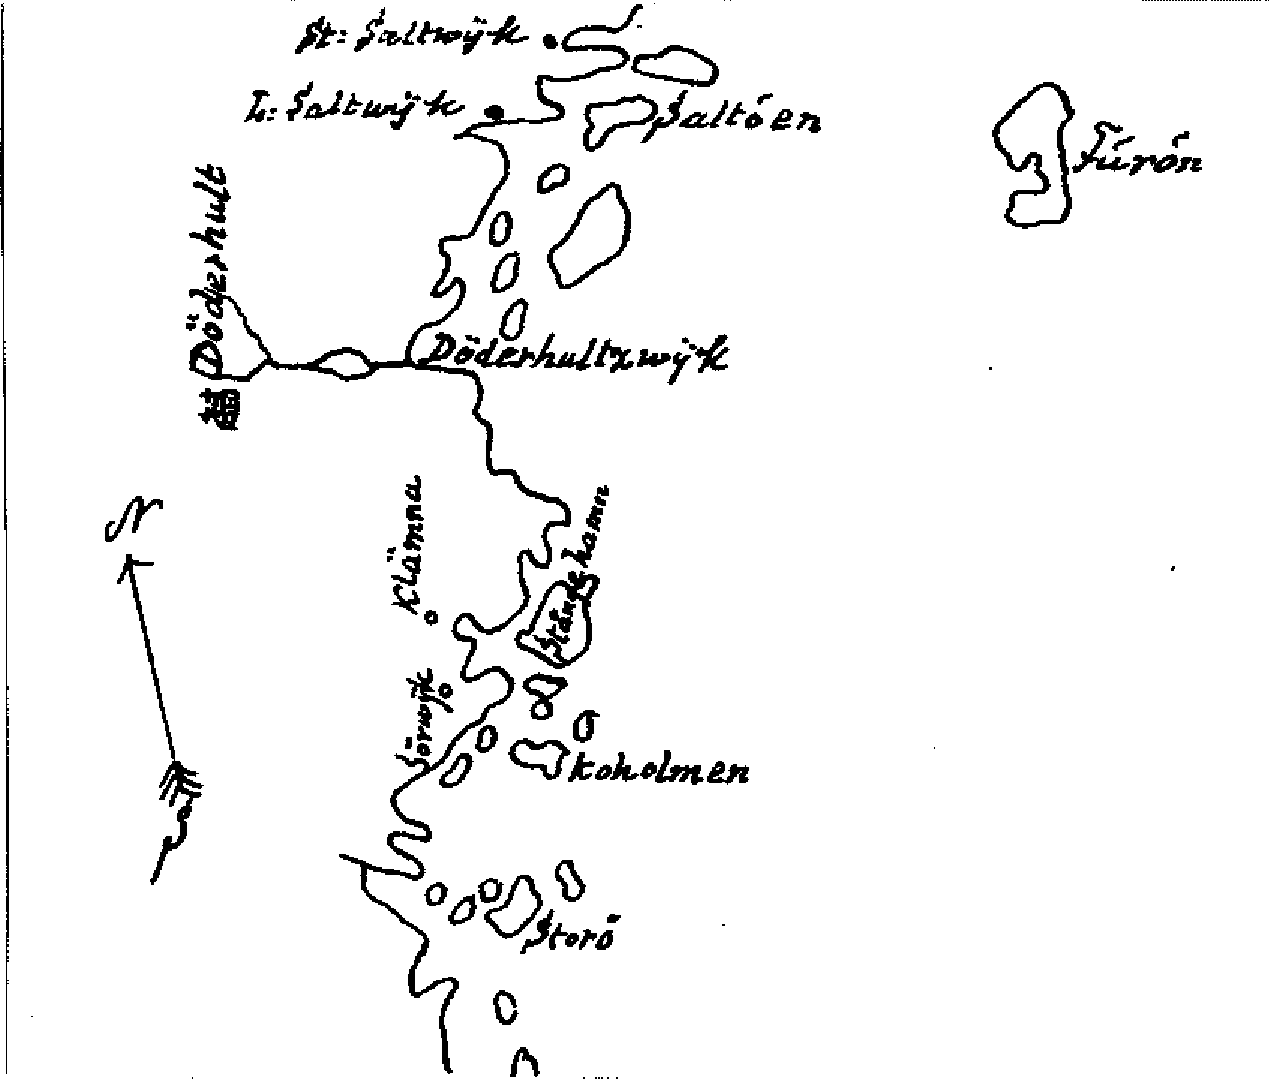 St: Saltwÿk
L: Saltwÿk
Saltóen
Fúrón
Döderhult
Döderhultzwÿk
N
Klämna
Stångehamn
Sörwÿk
Koholmen
Storö